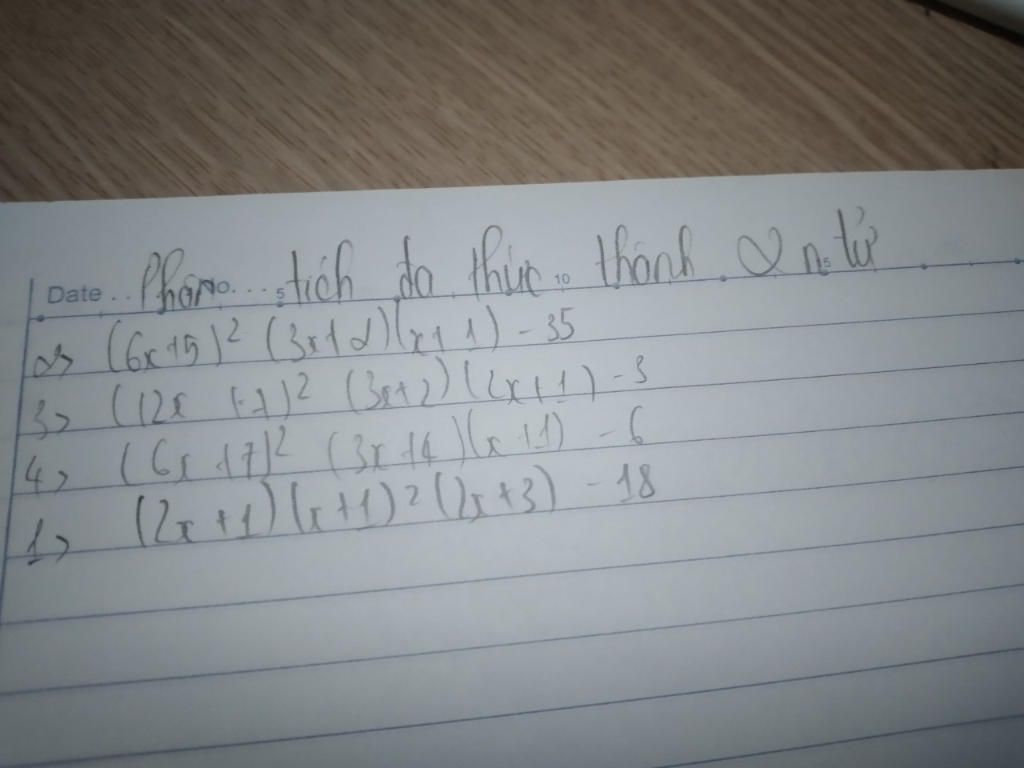 Date .. No. ...
Phân tích đa thức thành n tử
5 10 15
2> (6x+5)² (3x+2)(x+1) - 35
3> (12x +7)² (3x+2)(2x+1) - 3
4> (6x+7)² (3x+4)(x+1) - 6
1> (2x+1)(x+1)²(2x+3) - 18